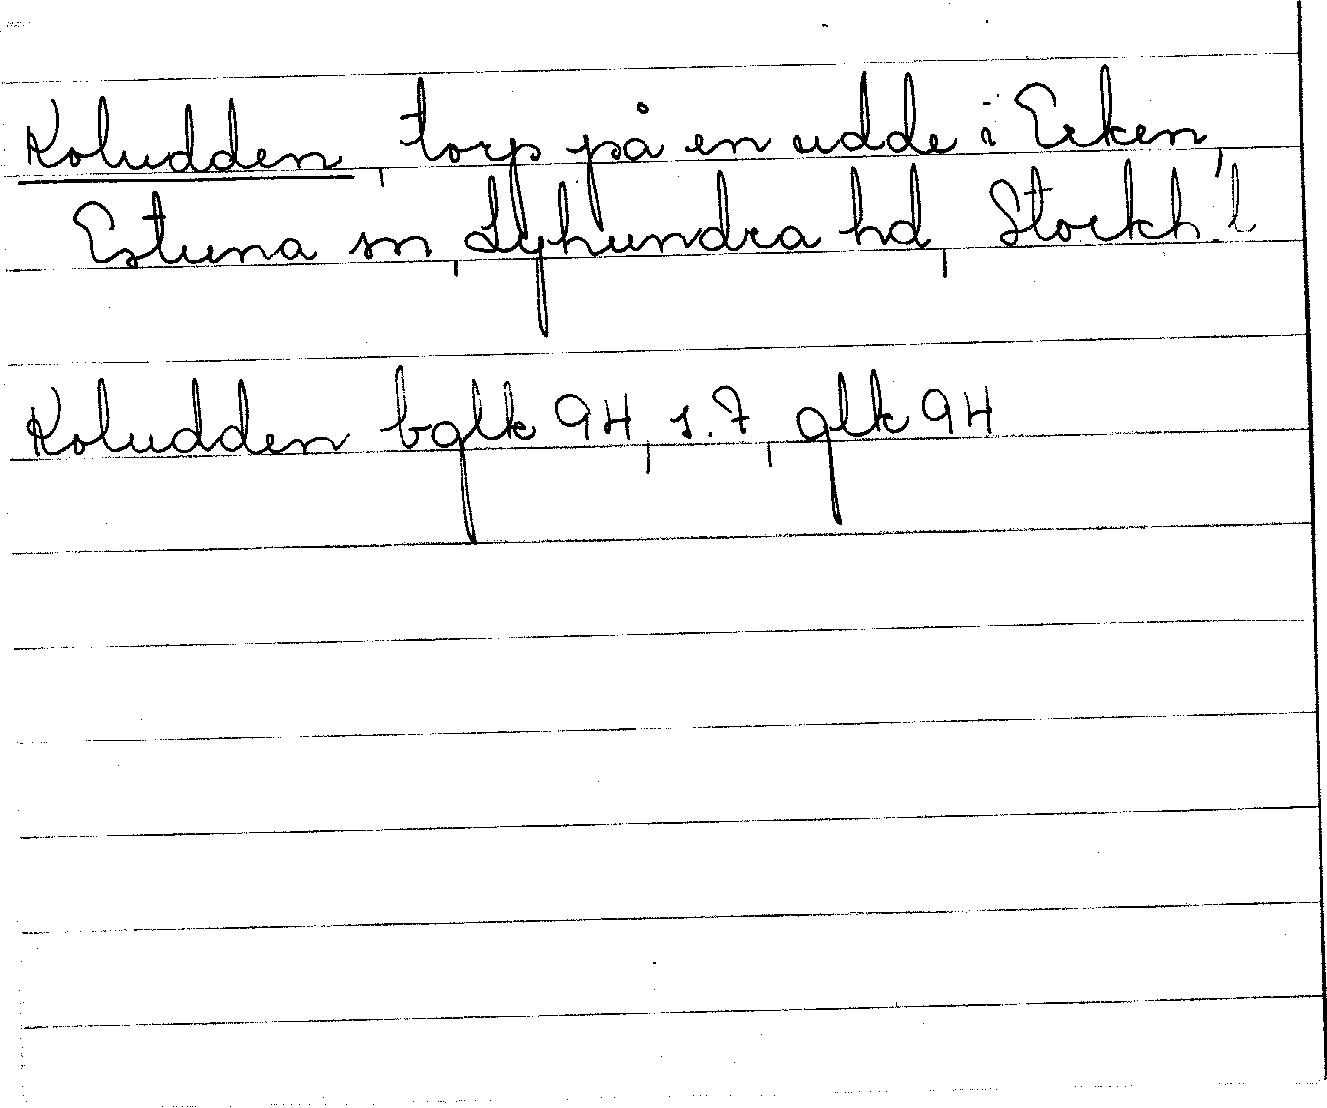 Koludden, torp på en udde i Erken,
Estuna sn, Lyhundra hd, Stockh. l
Koludden bglk 94, s. 7, glk 94